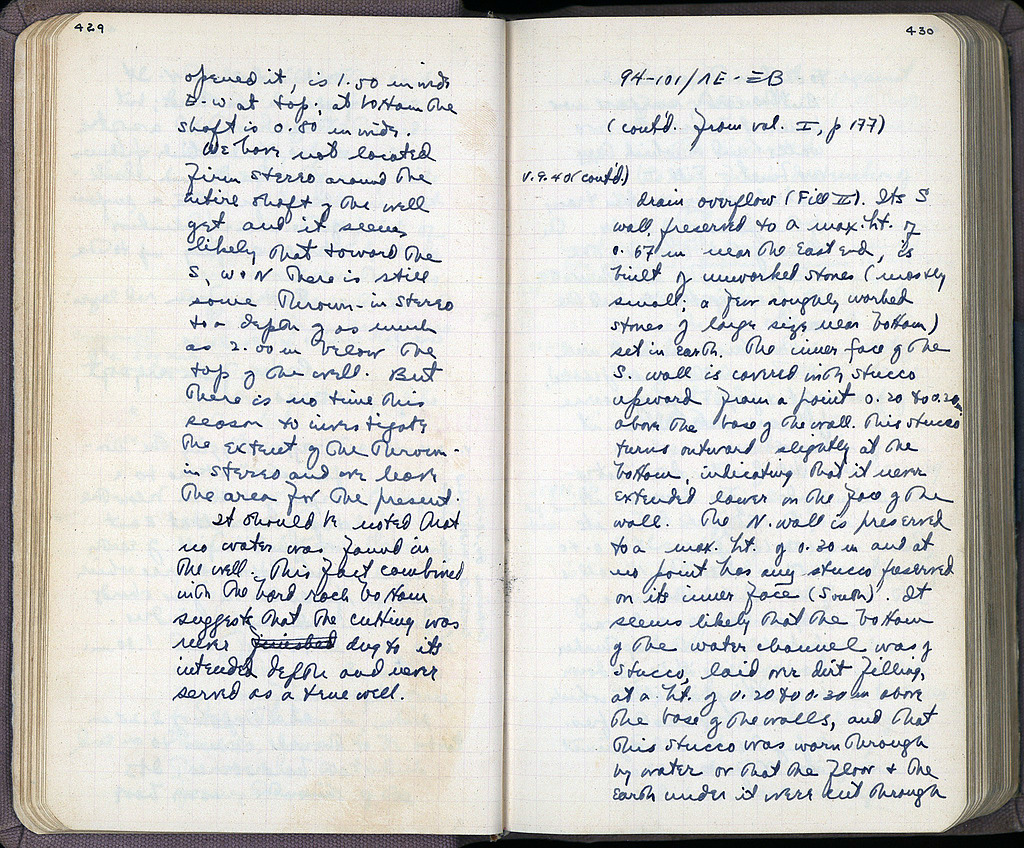 429
opened it, is 1.50 m wide
E-W at top; at bottom the
shaft is 0.80 m wide.
We have not located
firm stereo around the
entire shaft of the well
yet and it seems
likely that toward the
S, W + N there is still
some thrown-in stereo
to a depth of as much
as 2.00 m below the
top of the well. But
there is no time this
season to investigate
the extent of the thrown-
in stereo and we leave
the area for the present.
It should be noted that
no water was found in
the well. This fact combined
with the hard rock bottom
suggests that the cutting was
never finished dug to its
intended depth and never
served as a true well.
430
94-101/ΛΕ-ΞΒ
(contd. from vol. II, p 177)
V.9.40 (contd.)
drain overflow (Fill II). Its S
wall, preserved to a max. ht. of
0.67 m near the East end, is
built of unworked stones (mostly
small; a few roughly worked
stones of large size near bottom)
set in earth. The inner face of the
S. wall is covered with stucco
upward from a point 0.20 to 0.30 m
above the base of the wall. This stucco
turns outward slightly at the
bottom, indicating that it never
extended lower on the face of the
wall. The N. wall is preserved
to a max. ht. of 0.30 m and at
no point has any stucco preserved
on its inner face (South). It
seems likely that the bottom
of the water channel was of
stucco, laid over dirt filling,
at a ht. of 0.20 to 0.30 m above
the base of the walls, and that
this stucco was worn through
by water or that the floor + the
earth under it were cut through